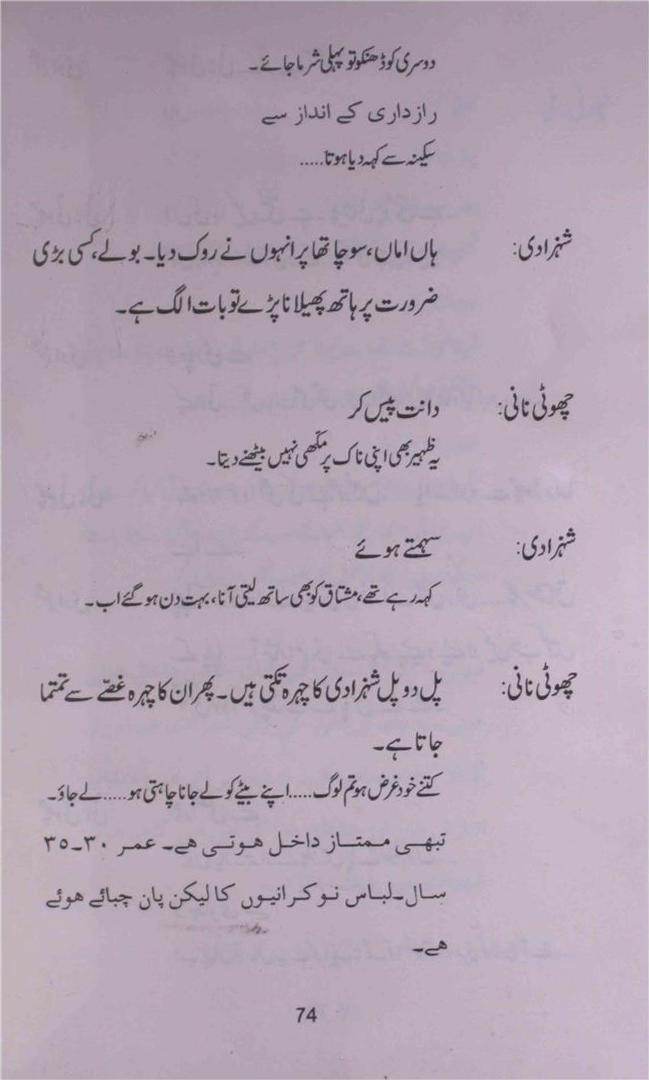 دوسری کو ڈھنکو تو پہلی شرما جائے۔
رازداری کے انداز سے
سکینہ سے کہہ دیا ہوتا.....
شہزادی: ہاں اماں، سوچا تھا پر انہوں نے روک دیا۔ بولے، کسی بڑی
ضرورت پر ہاتھ پھیلانا پڑے تو بات الگ ہے۔
چھوٹی نانی: دانت پیس کر
یہ ظہیر بھی اپنی ناک پر مکّھی نہیں بیٹھنے دیتا۔
شہزادی: سہمتے ہوئے
کہہ رہے تھے، مشتاق کو بھی ساتھ لیتی آنا، بہت دن ہو گئے اب۔
چھوٹی نانی: پل دو پل شہزادی کا چہرہ تکتی ہیں۔ پھر ان کا چہرہ غصّے سے تمتما
جاتا ہے۔
کتنے خود غرض ہو تم لوگ.....اپنے بیٹے کو لے جانا چاہتی ہو.....لے جاؤ۔
تبھی ممتاز داخل ہوتی ہے۔ عمر ۳۰۔۳۵
سال۔لباس نوکرانیوں کا لیکن پان چبائے ہوئے
ہے۔
74